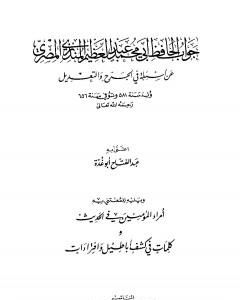 جواب الحافظ أبي محمد عبد العظيم المنذري المصري
عن أسئلة في الجرح والتعديل
ولد سنة ٥٨١ وتوفي سنة ٦٥٦
رحمه الله تعالى
اعتنى به
عبد الفتاح أبو غدة
ويليه للمعتني به
أمراء المؤمنين في الحديث
و
كلمات في كشف أباطيل وافتراءات